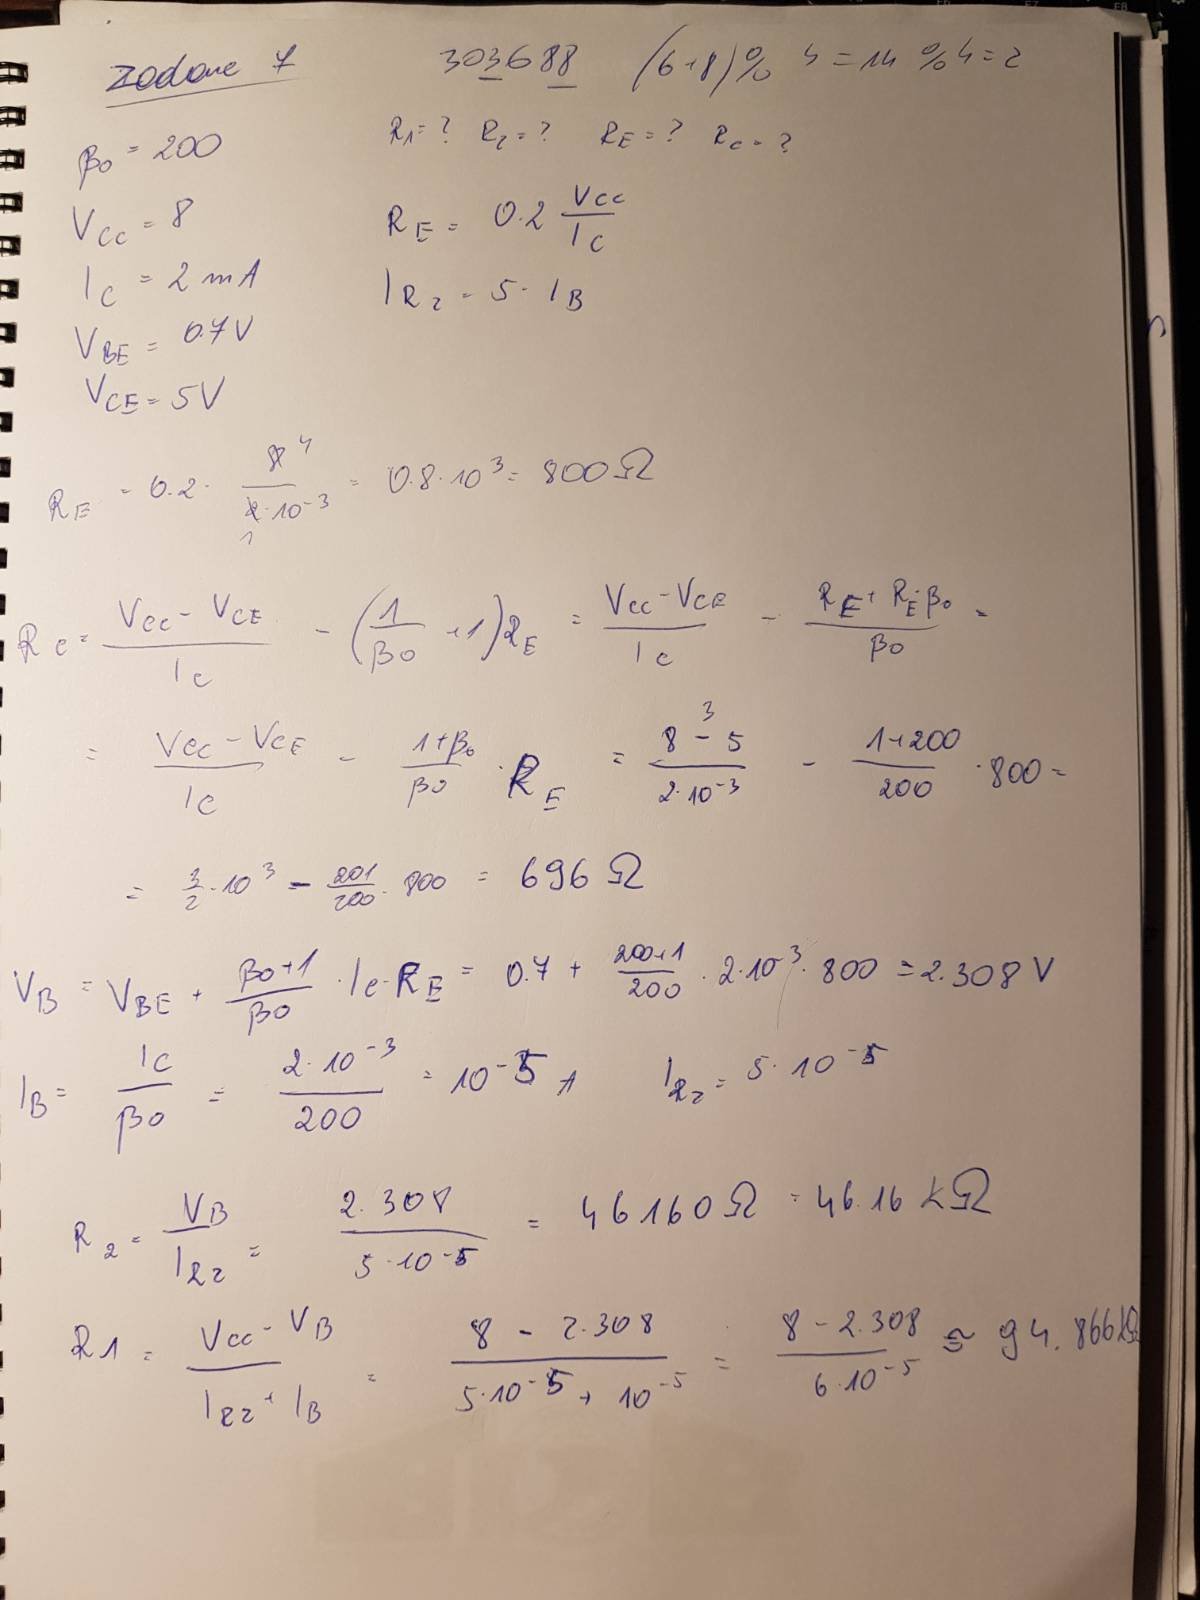 zadanie 7 303688 (6+8)% 4 = 14 % 4 = 2
β0 = 200 R1 = ? R2 = ? RE = ? Rc = ?
VCC = 8 RE = 0.2 VCC/IC
IC = 2 mA IR2 = 5 · IB
VBE = 0.7 V
VCE = 5V
RE = 0.2 · 8 4/2·10^-3 1 = 0.8·10^3 = 800Ω
Rc = (VCC - VCE)/IC - (1/β0 + 1)RE = (VCC - VCE)/IC - (RE + RE·β0)/β0 =
= (VCC - VCE)/IC - (1+β0)/β0 · RE = (8 - 5) 3/2·10^-3 - (1+200)/200 · 800 =
= 3/2 · 10^3 - 201/200 · 800 = 696 Ω
VB = VBE + (β0+1)/β0 · Ic · RE = 0.7 + (200+1)/200 · 2·10^-3 · 800 = 2.308 V
IB = IC/β0 = 2·10^-3/200 = 10^-5 A IR2 = 5·10^-5
R2 = VB/IR2 = 2.308/5·10^-5 = 46160Ω = 46.16 kΩ
R1 = (VCC - VB)/(IR2 + IB) = (8 - 2.308)/(5·10^-5 + 10^-5) = (8 - 2.308)/6·10^-5 ≈ 94.866kΩ